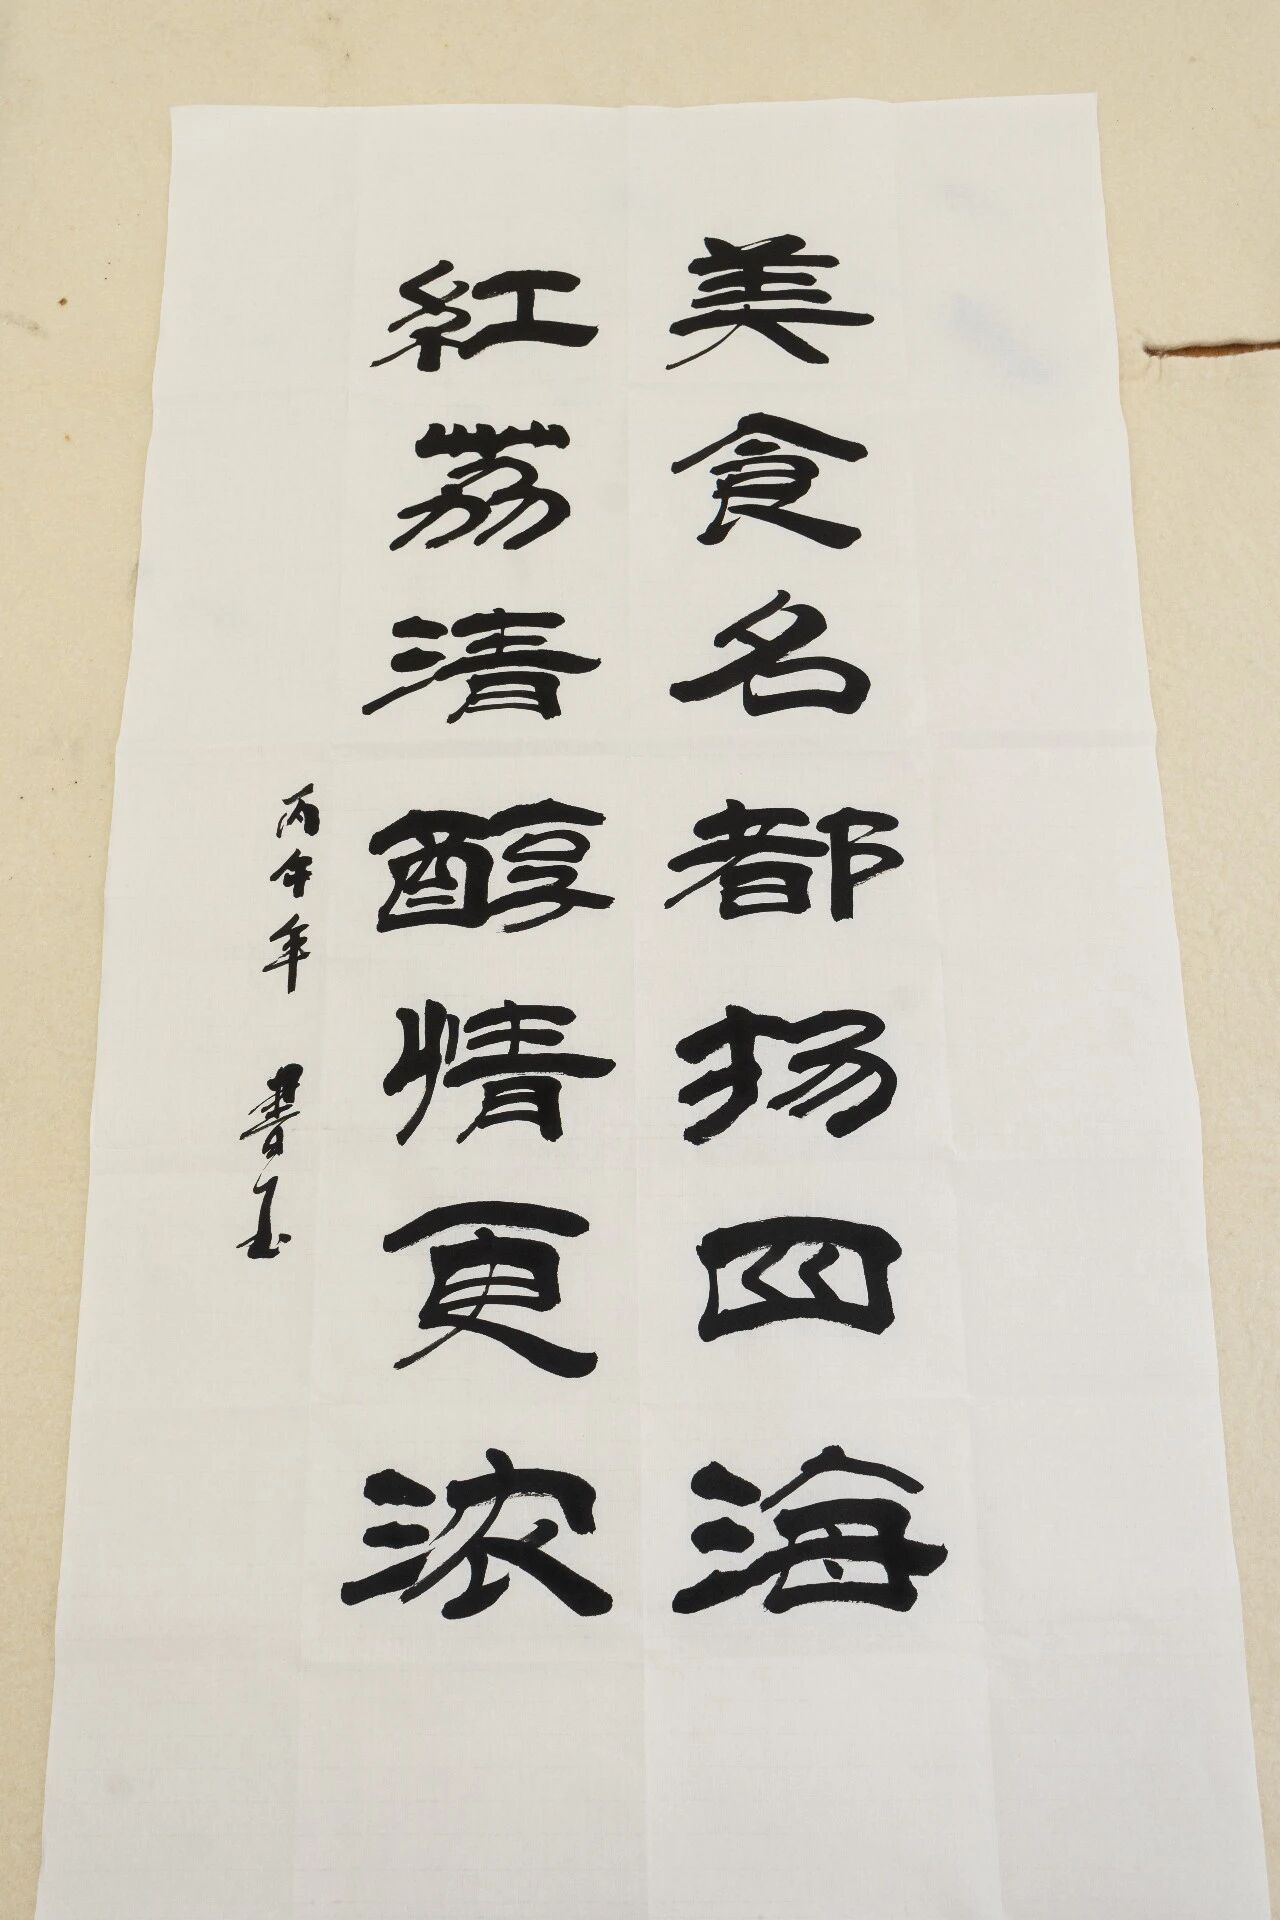 美食名都扬四海
红荔清醇情更浓
丙午年 书玉